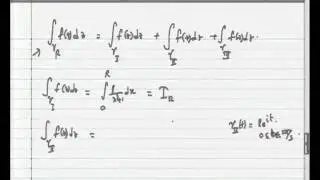 ∫_{γ_R} f(z)dz = ∫_{γ_I} f(z)dz + ∫_{γ_II} f(z)dz + ∫_{γ_III} f(z)dz.
∫_{γ_I} f(z)dz = ∫_0^R dx = I_R
∫_{γ_II} f(z)dz = γ_II(t) = Re^{it}